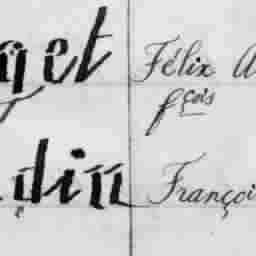 get Félix A
fçois
din Françoi